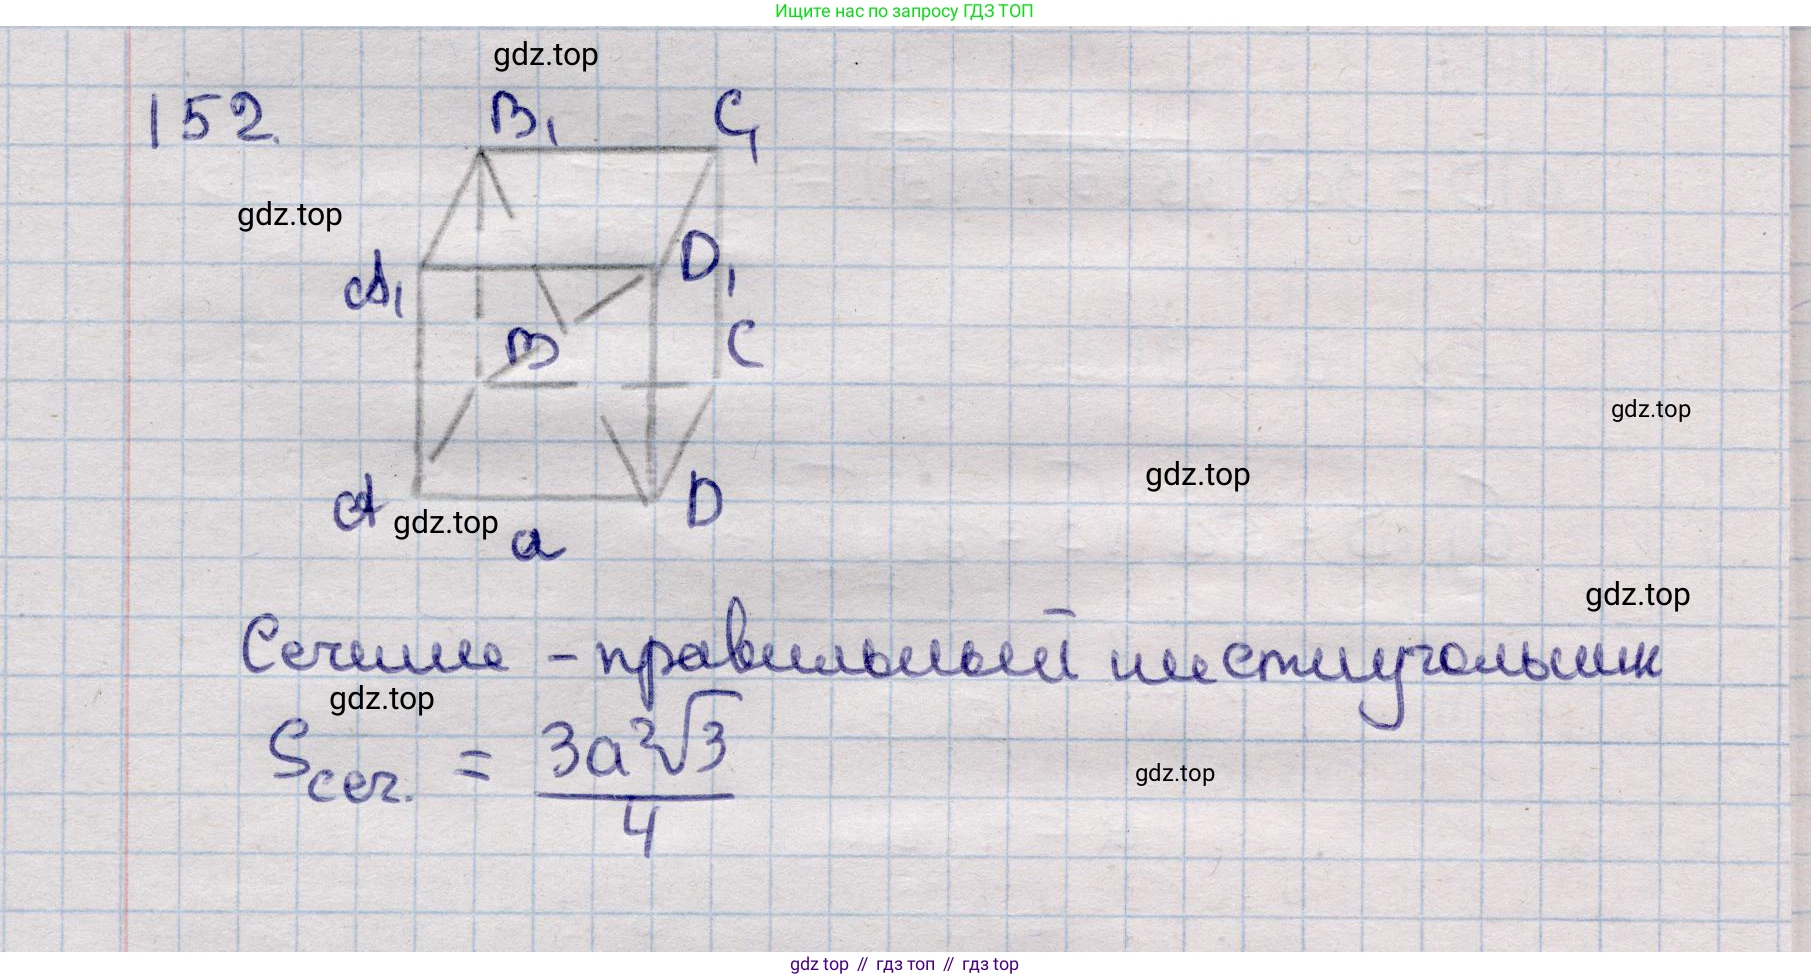 Ищите нас по запросу ГДЗ ТОП
gdz.top
152.
B₁ C₁
gdz.top
A₁ D₁
B C
gdz.top
gdz.top
A D
gdz.top
a
gdz.top
Сечение - правильный шестиугольник
gdz.top
Sсеч. = 3a²√3/4
gdz.top
gdz top // гдз топ // гдз top